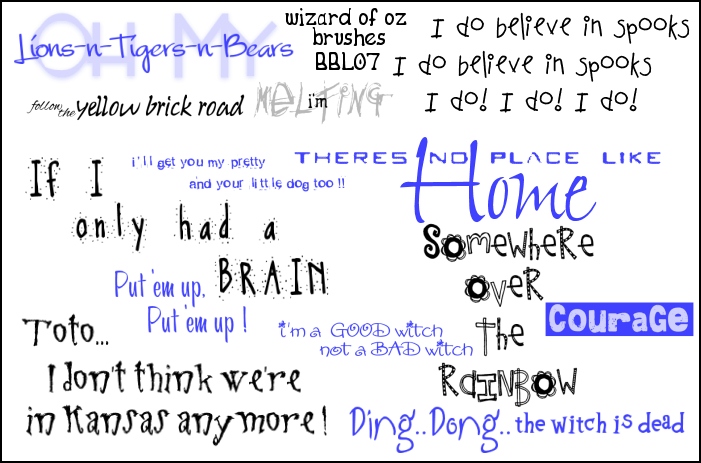 OH MY
Lions-n-Tigers-n-Bears
wizard of oz
brushes
BBL07
I do believe in spooks
I do believe in spooks
I do! I do! I do!
follow the yellow brick road
i'm MELTING
If I
only had a
BRAIN
i'll get you my pretty
and your little dog too !!
THERES NO PLACE LIKE
Home
Somewhere
over
the
Rainbow
Put 'em up,
Put 'em up !
Courage
i'm a GOOD witch
not a BAD witch
Toto...
I don't think we're
in Kansas anymore!
Ding..Dong..the witch is dead